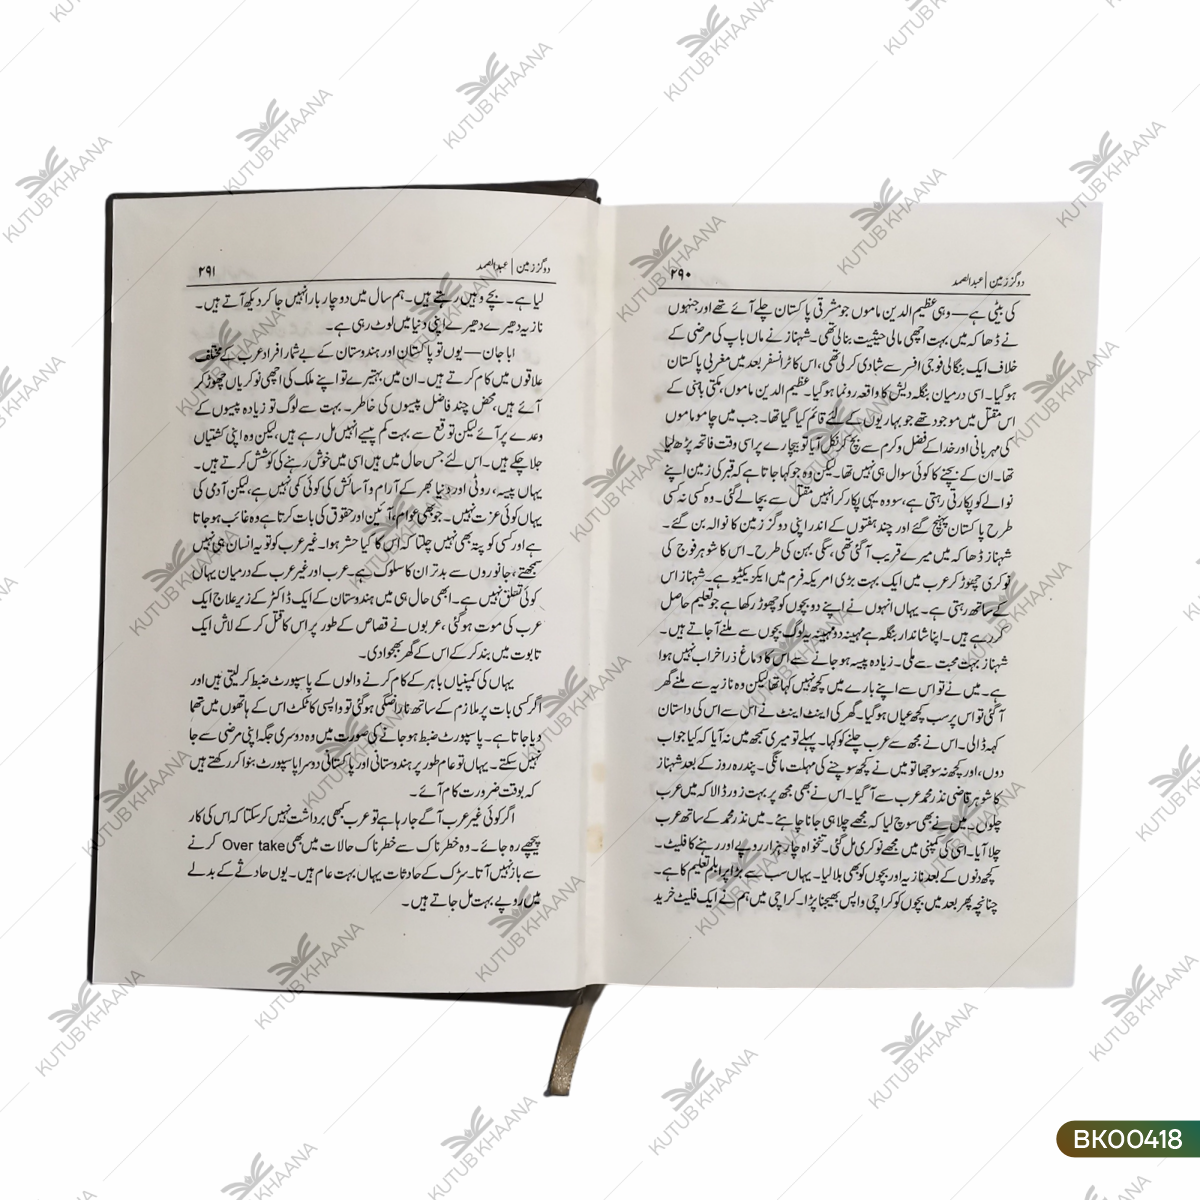 دو گز زمین | عبدالصمد ۲۹۰
کی بیٹی ہے — وہی عظیم الدین ماموں جو مشرقی پاکستان چلے آئے تھے اور جنہوں
نے ڈھاکہ میں بہت اچھی مالی حیثیت بنالی تھی۔ شہناز نے ماں باپ کی مرضی کے
خلاف ایک بنگالی فوجی افسر سے شادی کر لی تھی، اس کا ٹرانسفر بعد میں مغربی پاکستان
ہوگیا۔ اسی درمیان بنگلہ دیش کا واقعہ رونما ہوگیا۔ عظیم الدین ماموں، مکتی باہنی کے
اس مقتل میں موجود تھے جو بہاریوں کے لئے قائم کیا گیا تھا۔ جب میں چاموماموں
کی مہربانی اور خدا کے فضل و کرم سے بچ کر نکل آیا تو بیچارے پر اسی وقت فاتحہ پڑھ لیا
تھا۔ ان کے بچنے کا کوئی سوال ہی نہیں تھا۔ لیکن وہ جو کہا جاتا ہے کہ قبر کی زمین اپنے
نوالے کو پکارتی رہتی ہے، سو وہ یہی پکار کر انہیں مقتل سے بچالے گئی۔ وہ کسی نہ کسی
طرح پاکستان پہنچ گئے اور چند ہفتوں کے اندر اپنی دو گز زمین کا نوالہ بن گئے۔
شہناز ڈھاکہ میں میرے قریب آگئی تھی، سگی بہن کی طرح۔ اس کا شوہر فوج کی
نوکری چھوڑ کر عرب میں ایک بہت بڑی امریکہ فرم میں ایکزیکٹیو ہے۔ شہناز اس
کے ساتھ رہتی ہے۔ یہاں انہوں نے اپنے دو بچوں کو چھوڑ رکھا ہے جو تعلیم حاصل
کر رہے ہیں۔ اپنا شاندار بنگلہ ہے مہینہ دو مہینہ یہ لوگ بچوں سے ملنے آجاتے ہیں۔
شہناز بہت محبت سے ملی۔ زیادہ پیسہ ہو جانے سے اس کا دماغ ذرا خراب نہیں ہوا
ہے۔ میں نے تو اس سے اپنے بارے میں کچھ نہیں کہا تھا لیکن وہ نازیہ سے ملنے گھر
آگئی تو اس پر سب کچھ عیاں ہوگیا۔ گھر کی اینٹ اینٹ نے اس سے اس کی داستان
کہہ ڈالی۔ اس نے مجھ سے عرب چلنے کو کہا۔ پہلے تو میری سمجھ میں نہ آیا کہ کیا جواب
دوں، اور کچھ نہ سوجھا تو میں نے کچھ سوچنے کی مہلت مانگی۔ پندرہ روز کے بعد شہناز
کا شوہر قاضی نذر محمد عرب سے آگیا۔ اس نے بھی مجھ پر بہت زور ڈالا کہ میں عرب
چلوں۔ میں نے بھی سوچ لیا کہ مجھے چلا ہی جانا چاہئے۔ میں نذر محمد کے ساتھ عرب
چلا آیا۔ اسی کی کمپنی میں مجھے نوکری مل گئی۔ تنخواہ چار ہزار روپے اور رہنے کا فلیٹ۔
کچھ دنوں کے بعد نازیہ اور بچوں کو بھی بلا لیا۔ یہاں سب سے بڑا پرابلم تعلیم کا ہے۔
چنانچہ پھر بعد میں بچوں کو کراچی واپس بھیجنا پڑا۔ کراچی میں ہم نے ایک فلیٹ خرید
دو گز زمین | عبدالصمد ۲۹۱
لیا ہے۔ بچے وہیں رہتے ہیں۔ ہم سال میں دو چار بار انہیں جاکر دیکھ آتے ہیں۔
نازیہ دھیرے دھیرے اپنی دنیا میں لوٹ رہی ہے۔
ابا جان — یوں تو پاکستان اور ہندوستان کے بے شمار افراد عرب کے مختلف
علاقوں میں کام کرتے ہیں۔ ان میں بہتیرے تو اپنے ملک کی اچھی نوکریاں چھوڑ کر
آئے ہیں، محض چند فاضل پیسوں کی خاطر۔ بہت سے لوگ تو زیادہ پیسوں کے
وعدے پر آئے لیکن توقع سے بہت کم پیسے انہیں مل رہے ہیں، لیکن وہ اپنی کشتیاں
جلا چکے ہیں۔ اس لئے جس حال میں ہیں اسی میں خوش رہنے کی کوشش کرتے ہیں۔
یہاں پیسہ، روٹی اور دنیا بھر کے آرام و آسائش کی کوئی کمی نہیں ہے، لیکن آدمی کی
یہاں کوئی عزت نہیں۔ جو بھی عوام، آئین اور حقوق کی بات کرتا ہے وہ غائب ہو جاتا
ہے اور کسی کو پتہ بھی نہیں چلتا کہ اس کا کیا حشر ہوا۔ غیر عرب کو تو یہ انسان ہی نہیں
سمجھتے، جانوروں سے بدتر ان کا سلوک ہے۔ عرب اور غیر عرب کے درمیان یہاں
کوئی تعلق نہیں ہے۔ ابھی حال ہی میں ہندوستان کے ایک ڈاکٹر کے زیر علاج ایک
عرب کی موت ہوگئی، عربوں نے قصاص کے طور پر اس کا قتل کر کے لاش ایک
تابوت میں بند کر کے اس کے گھر بھجوا دی۔
یہاں کی کمپنیاں باہر کے کام کرنے والوں کے پاسپورٹ ضبط کر لیتی ہیں اور
اگر کسی بات پر ملازم کے ساتھ ناراضگی ہوگئی تو واپسی کا ٹکٹ اس کے ہاتھوں میں تھما
دیا جاتا ہے۔ پاسپورٹ ضبط ہو جانے کی صورت میں وہ دوسری جگہ اپنی مرضی سے جا
نہیں سکتے۔ یہاں تو عام طور پر ہندوستانی اور پاکستانی دوسرا پاسپورٹ بنوا کر رکھتے ہیں
کہ بوقت ضرورت کام آئے۔
اگر کوئی غیر عرب آگے جا رہا ہے تو عرب کبھی برداشت نہیں کر سکتا کہ اس کی کار
پیچھے رہ جائے۔ وہ خطرناک سے خطرناک حالات میں بھی Over take کرنے
سے باز نہیں آتا۔ سڑک کے حادثات یہاں بہت عام ہیں۔ یوں حادثے کے بدلے
میں روپے بہت مل جاتے ہیں۔
KUTUB KHAANA
BK00418